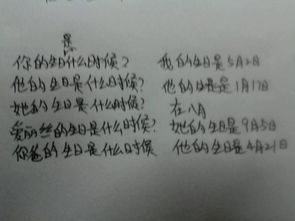 是
你的生日什么时候? 我的生日是5月2日
他的生日是什么时候? 他的生日是1月17日
她的生日是什么时候? 在八月
爱丽丝的生日是什么时候? 她的生日是9月5日
你爸的生日是什么时候 他的生日是4月21日